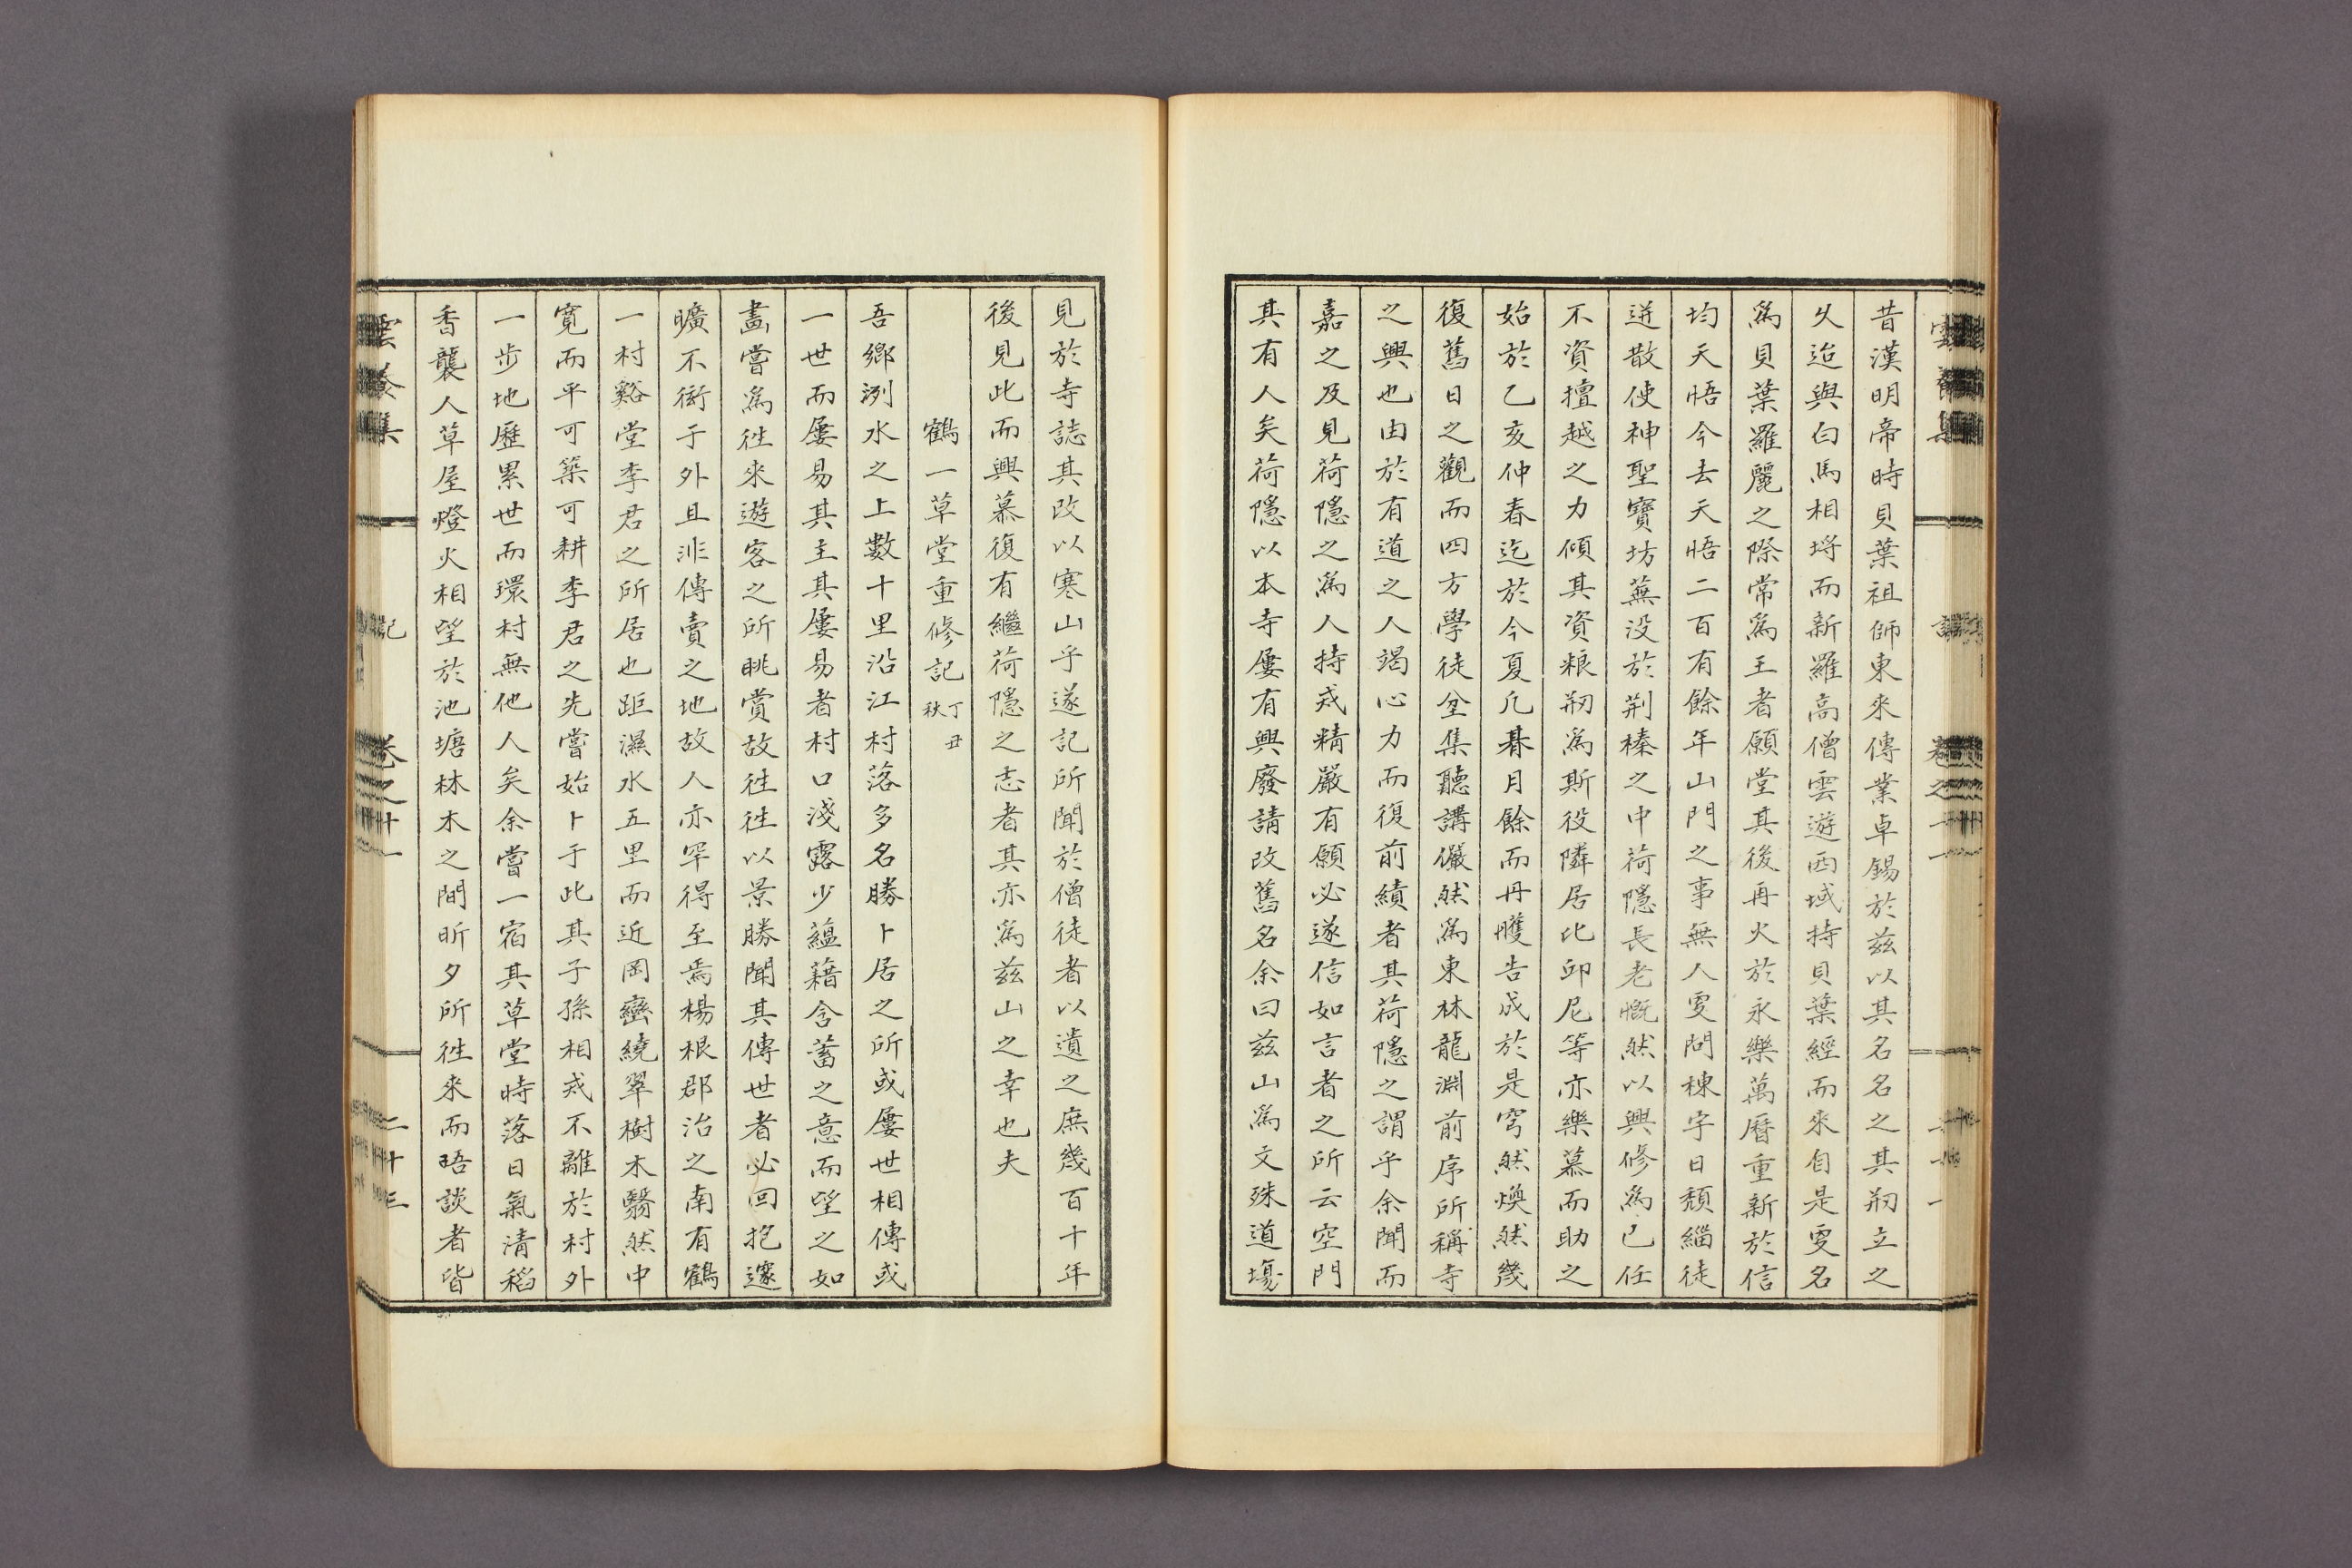 昔漢明帝時貝葉祖師東來傳業卓錫於茲以其名名之其刱立之
乆迨與白馬相埒而新羅高僧雲遊西域持貝葉經而來自是更名
爲貝葉羅麗之際常爲王者願堂其後再火於永樂萬曆重新於信
均天悟今去天悟二百有餘年山門之事無人更問棟宇日頹緇徒
迸散使神聖寶坊蕪没於荆榛之中荷隱長老慨然以興修爲己任
不資檀越之力傾其資粮刱爲斯役隣居比邱尼等亦樂慕而助之
始於乙亥仲春迄於今夏凡朞月餘而丹雘告成於是穹然煥然幾
復舊日之觀而四方學徒坌集聽講儼然爲東林龍淵前序所稱寺
之興也由於有道之人竭心力而復前績者其荷隱之謂乎余聞而
嘉之及見荷隱之爲人持戒精嚴有願必遂信如言者之所云空門
其有人矣荷隱以本寺屢有興廢請改舊名余曰茲山爲文殊道塲
見於寺誌其改以寒山乎遂記所聞於僧徒者以遺之庶幾百十年
後見此而興慕復有繼荷隱之志者其亦爲茲山之幸也夫
鶴一草堂重修記 丁丑秋
吾鄉洌水之上數十里沿江村落多名勝卜居之所或屢世相傳或
一世而屢易其主其屢易者村口淺露少蘊藉含蓄之意而望之如
畵嘗爲徃來遊客之所眺賞故徃徃以景勝聞其傳世者必回抱邃
曠不衒于外且非傳賣之地故人亦罕得至焉楊根郡治之南有鶴
一村谿堂李君之所居也距濕水五里而近岡巒繞翠樹木翳然中
寬而平可築可耕李君之先嘗始卜于此其子孫相戒不離於村外
一步地歷累世而環村無他人矣余嘗一宿其草堂時落日氣清稻
香襲人草屋燈火相望於池塘林木之間昕夕所徃來而晤談者皆
集 記 卷之十一 二十三